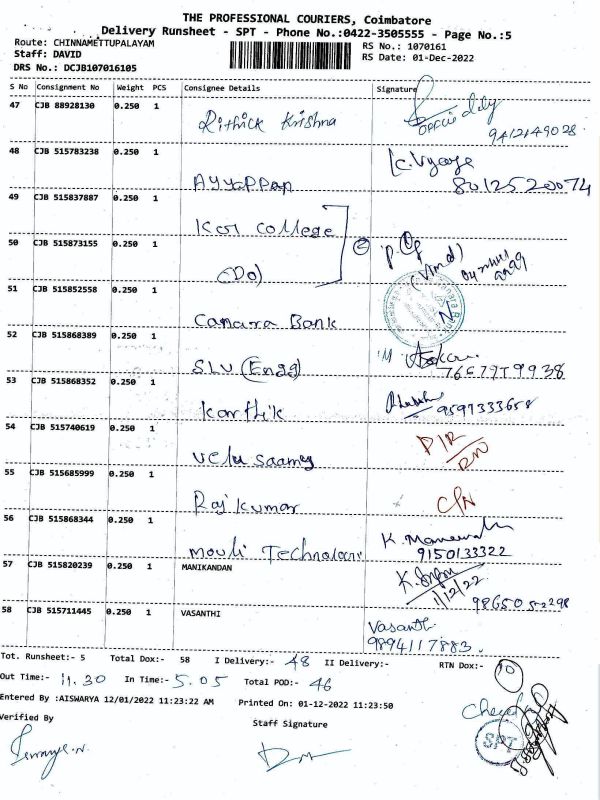 THE PROFESSIONAL COURIERS, Coimbatore
Delivery Runsheet - SPT - Phone No.:0422-3505555 - Page No.:5
Route: CHINNAMETTUPALAYAM
Staff: DAVID
DRS No.: DCJB107016105
RS No.: 1070161
RS Date: 01-Dec-2022
S No Consignment No Weight PCS Consignee Details Signature
47 CJB 88928130 0.250 1 Rithick Krishna
9412149028
48 CJB 515783238 0.250 1 Ayyappan
8012520074
49 CJB 515837887 0.250 1 College
50 CJB 515873155 0.250 1 (Do) 2
51 CJB 515852558 0.250 1 Canara Bank
52 CJB 515868389 0.250 1 SLV (Engg)
53 CJB 515868352 0.250 1 Karthik
9597333658
54 CJB 515740619 0.250 1 Velu Saamy
55 CJB 515685999 0.250 1 Rajkumar
56 CJB 515868344 0.250 1 Mouli
9150133322
57 CJB 515820239 0.250 1 MANIKANDAN
1/12/22
58 CJB 515711445 0.250 1 VASANTHI
Vasanthi
9894117883.
Tot. Runsheet:- 5 Total Dox:- 58 I Delivery:- 48 II Delivery:- RTN Dox:- 10
Out Time:- 11.30 In Time:- 5.05 Total POD:- 46
Entered By :AISWARYA 12/01/2022 11:23:22 AM Printed On: 01-12-2022 11:23:50
Verified By Staff Signature
SPT